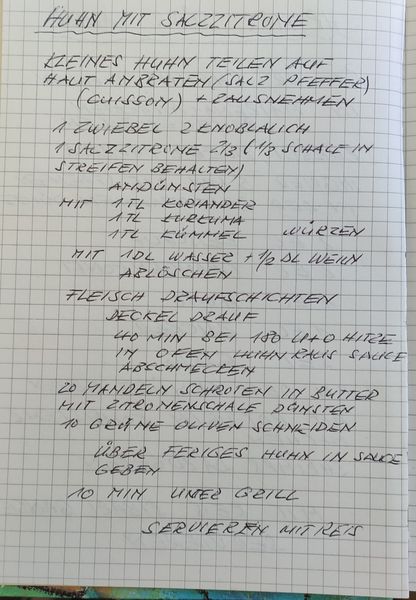 HUHN MIT SALZZITRONE
KLEINES HUHN TEILEN AUF
HAUT ANBRATEN (SALZ PFEFFER)
(CUISSON) + RAUSNEHMEN
1 ZWIEBEL 2 KNOBLAUCH
1 SALZZITRONE 2/3 (1/3 SCHALE IN
STREIFEN BEHALTEN)
ANDÜNSTEN
MIT 1TL KORIANDER
1TL KURKUMA
1TL KÜMMEL WÜRZEN
MIT 1DL WASSER + 1/2 DL WEIIN
ABLÖSCHEN
FLEISCH DRAUFSCHICHTEN
DECKEL DRAUF
40 MIN BEI 180 U+O HITZE
IN OFEN HUHN RAUS SAUCE
ABSCHMECKEN
20 MANDELN SCHROTEN IN BUTTER
MIT ZITRONENSCHALE DÜNSTEN
10 GRÜNE OLIVEN SCHNEIDEN
ÜBER FERIGES HUHN IN SAUCE
GEBEN
10 MIN UNTER GRILL
SERVIEREN MIT REIS